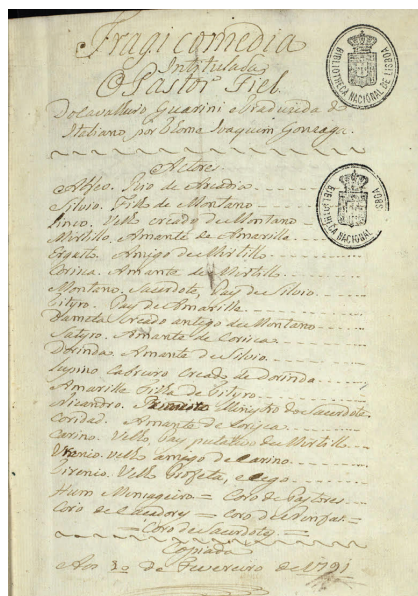 Tragicomedia
Intitulada
O Pastor Fiel.
Do Cavalluro Guarini e Traduzida do
Italiano por Thome Joaquim Gonzaga.
BIBLIOTHECA NACIONAL DE LISBOA
Actores.
Alfeo. Rio de Arcadia
BIBLIOTHECA NACIONAL LISBOA
Silvio. Filho de Montano
Linco. Velho creado de Montano
Mirtillo. Amante de Amarilla
Ergasto. Amigo de Mirtillo
Corisca. Amante de Mirtillo
Montano. Sacerdote, Pay de Silvio
Tityro. Pay de Amarille
Dameta Creado antigo de Montano
Satyro. Amante de Corisca
Dorinda. Amante de Silvio
Lupino Cabreiro Creado de Dorinda
Amarilla Filha de Tityro
Nicandro. Ministro do Sacerdote
Coridad. Amante de Corisca
Carino. Velho, Pay putativo de Mirtillo
Uranio. velho amigo de Carino
Tirenio. Velho Profeta, e cego
Hum Mensageiro = Coro de Pastores
Coro de Caçadores = Coro de Ninfas =
= Coro de Sacerdotes =
Copiada
Aos de Fevereiro de 1791